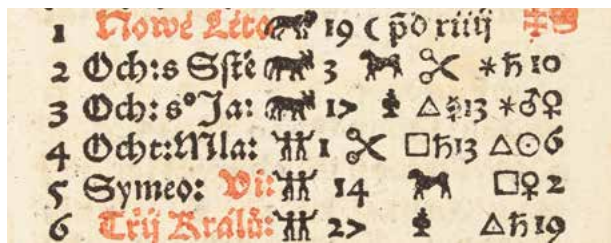 1 Nowé Léto ♉ 19 ☾ p̄d xiiij
2 Och: s Sstě ♉ 3 ✂ ⚹ ♄ 10
3 Och: s° Ja: ♉ 17 △ ☿ 13 ⚹ ♂ ♀
4 Ocht: Mla: ♊ 1 ✂ □ ♄ 13 △ ☉ 6
5 Symeo: Vi: ♊ 14 □ ♀ 2
6 Třij Králů: ♊ 27 △ ♄ 19